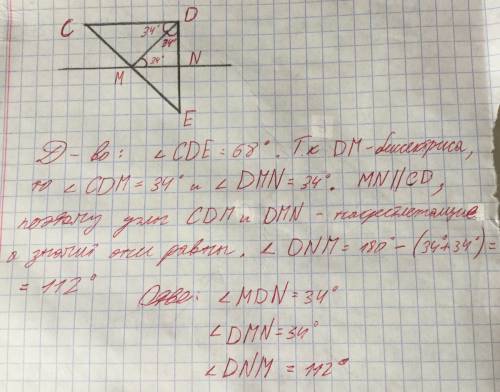 C D
34°
34°
M 34° N
E
Д-во: ∠CDE=68°. Т.к DM-биссектриса,
то ∠CDM=34° и ∠DMN=34°. MN||CD,
поэтому углы CDM и DMN - накрестлежащие
а значит они равны. ∠DNM=180°-(34°+34°)=
=112°
Ответ: ∠MDN=34°
∠DMN=34°
∠DNM=112°